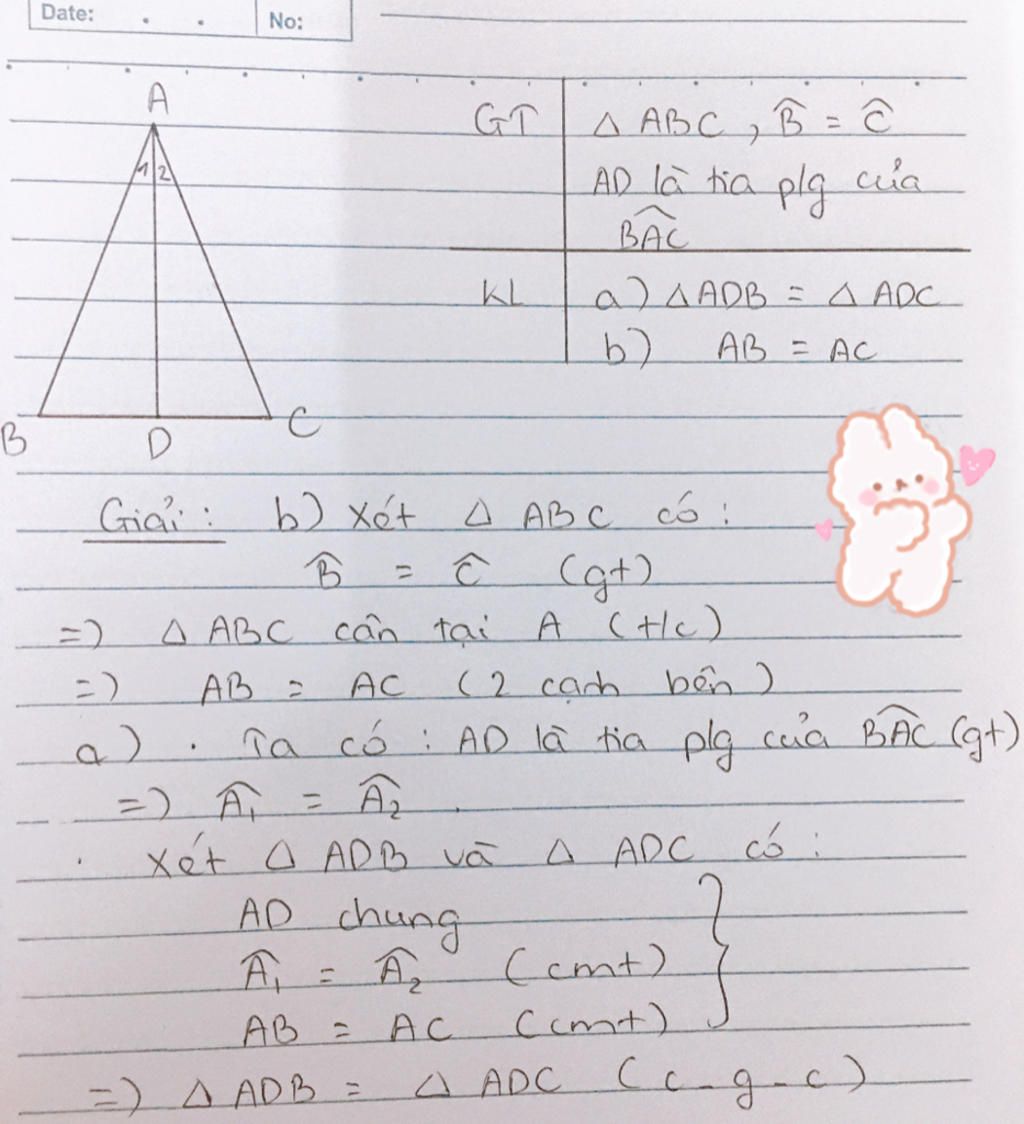 Date: . . No:
A
1 2
B D C
GT △ ABC, B̂ = Ĉ
AD là tia plg của
B̂AC
KL a) △ADB = △ ADC
b) AB = AC
Giải: b) Xét △ ABC có:
B̂ = Ĉ (gt)
=) △ ABC cân tại A (t/c)
=) AB = AC (2 cạnh bên)
a) . Ta có: AD là tia plg của B̂AC (gt)
=) Â₁ = Â₂.
. Xét △ ADB và △ ADC có:
AD chung
Â₁ = Â₂ (cmt)
AB = AC (cmt)
=) △ ADB = △ ADC (c-g-c)